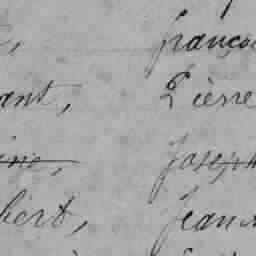 françoi
ant, Pierre
ine, Joseph
bert, Jean